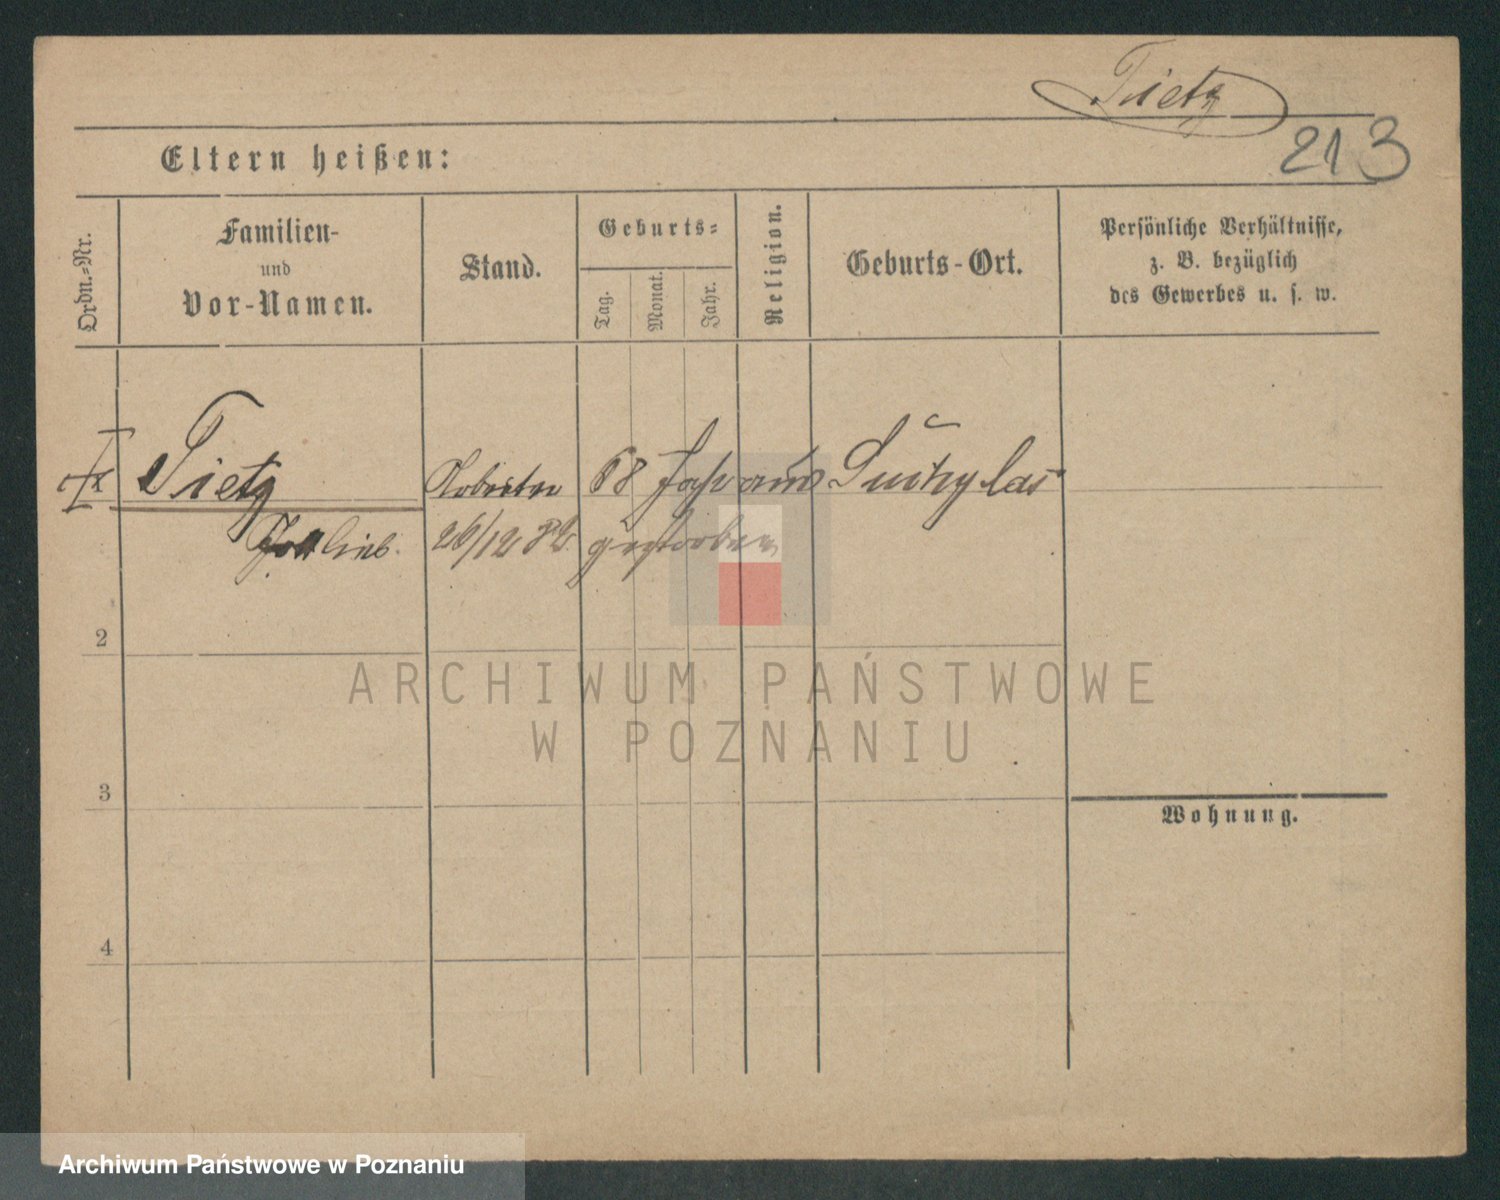 Tietz
213
Eltern heißen:
Ordn.-Nr.
Familien-
und
Vor-Namen.
Stand.
Geburts-
Tag.
Monat.
Jahr.
Religion.
Geburts-Ort.
Persönliche Verhältnisse,
z. B. bezüglich
des Gewerbes u. s. w.
Tietz 68 Jahr
Gottlieb. 26/12 82 gestorben
2
3
4
Wohnung.
ARCHIWUM PAŃSTWOWE
W POZNANIU
Archiwum Państwowe w Poznaniu